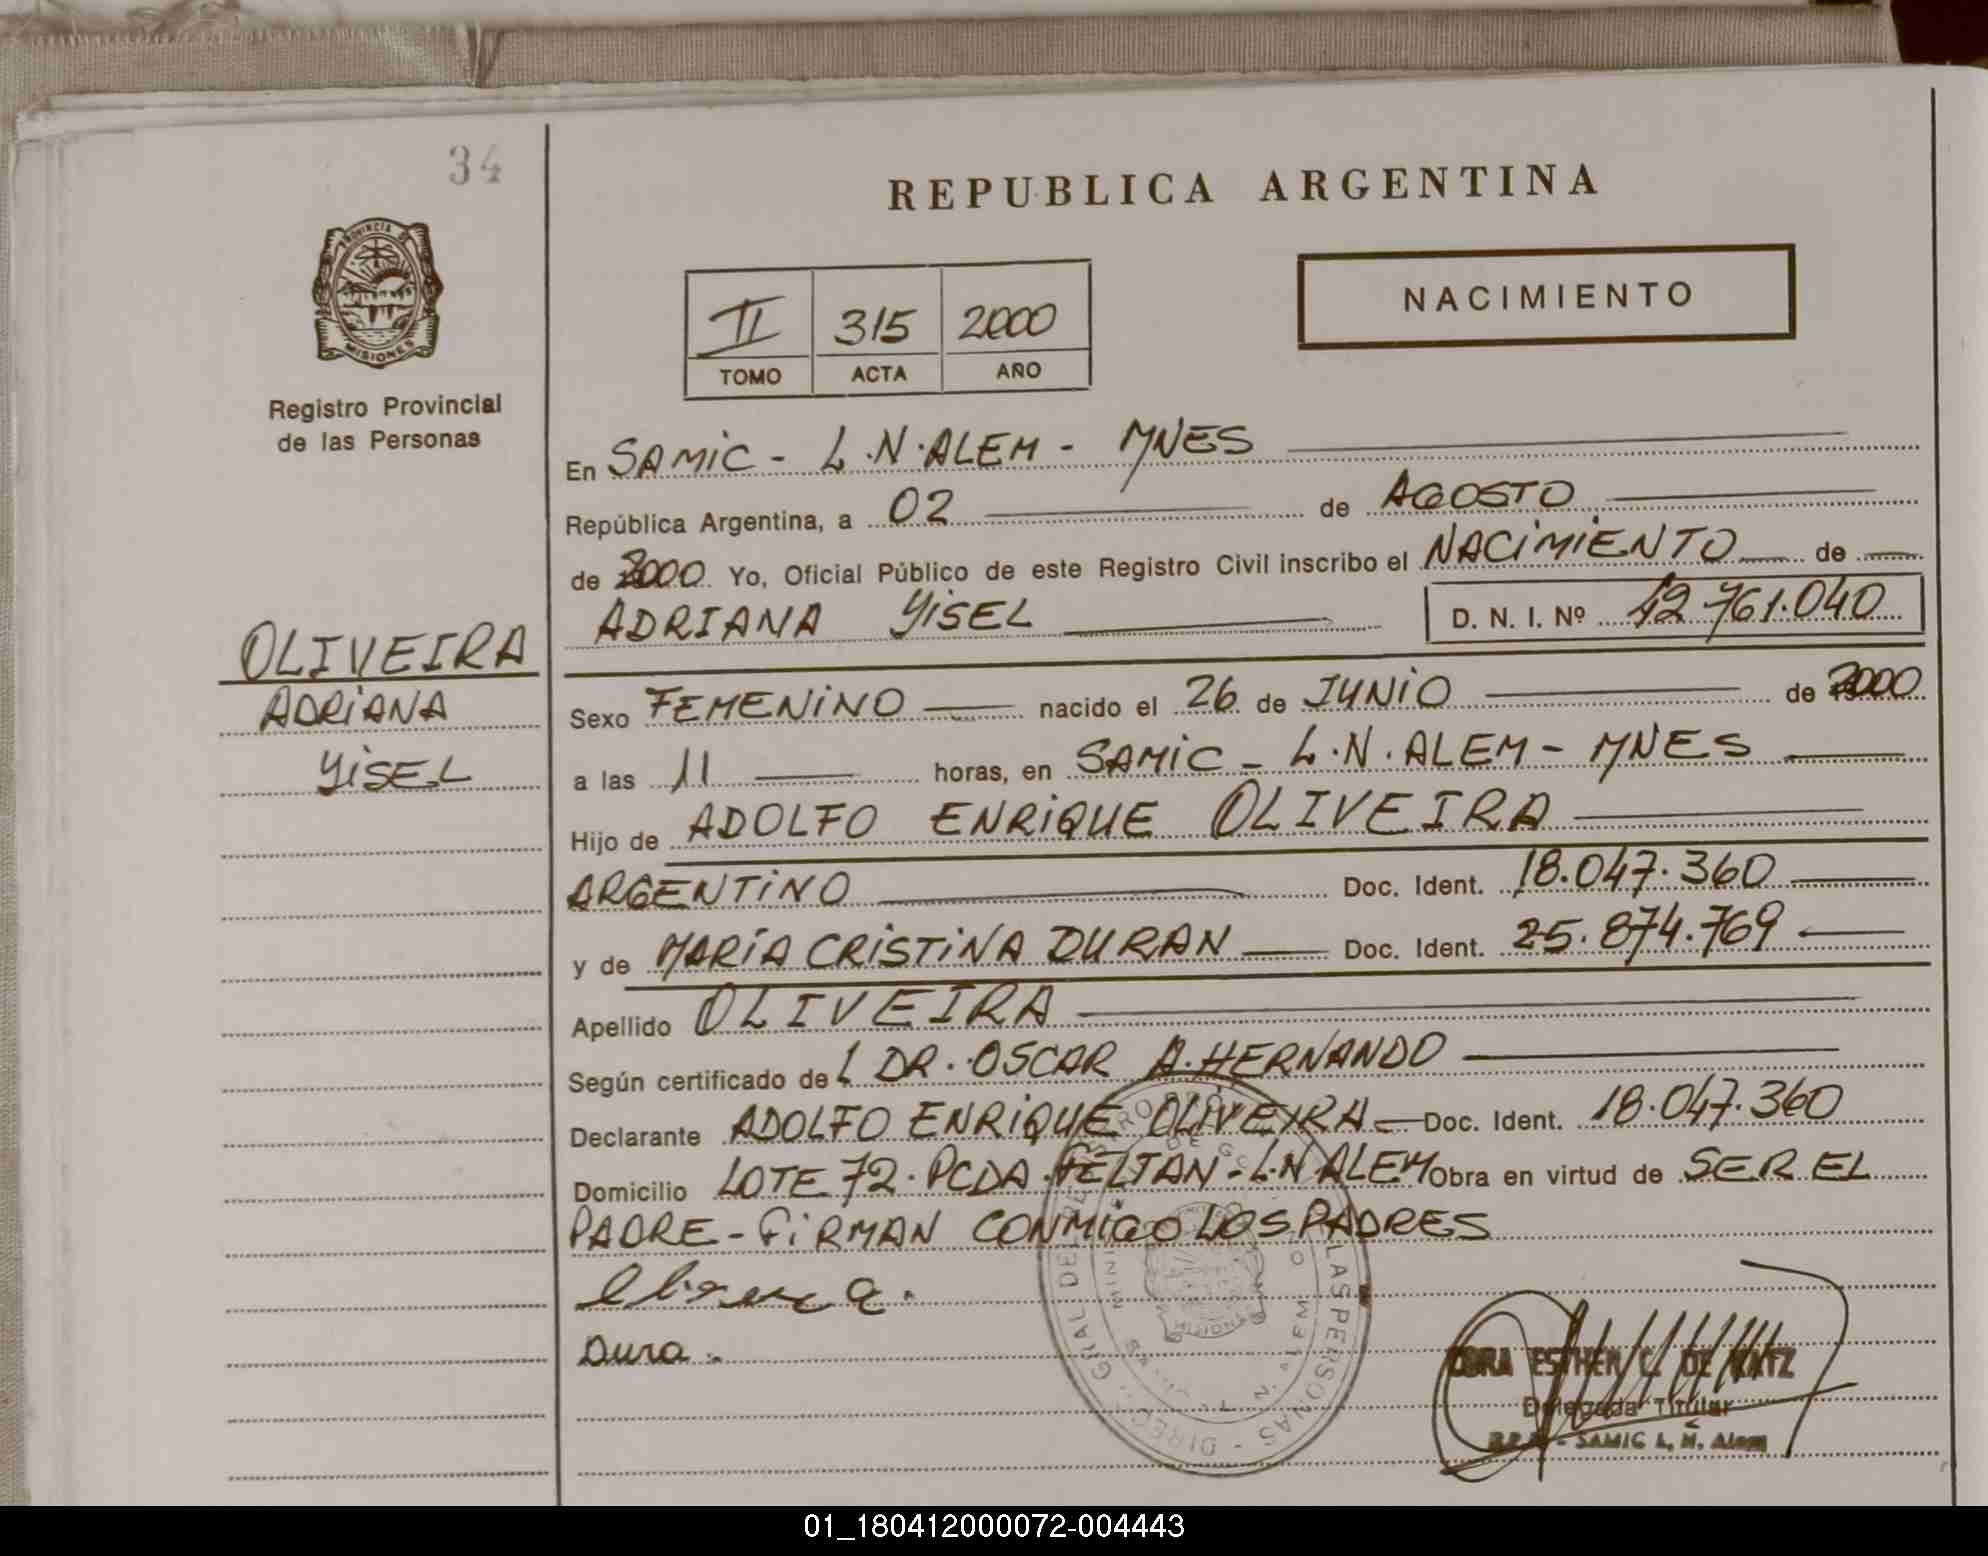 34
PROVINCIA DE
MISIONES
Registro Provincial
de las Personas
OLIVEIRA
ADRIANA
YISEL
REPUBLICA ARGENTINA
II 315 2000
TOMO ACTA AÑO
NACIMIENTO
En SAMIC - L.N.ALEM - MNES
República Argentina, a 02 de AGOSTO
de 2000 Yo, Oficial Público de este Registro Civil inscribo el NACIMIENTO de
ADRIANA YISEL D. N. I. Nº 42.761.040
Sexo FEMENINO nacido el 26 de JUNIO de 2000
a las 11 horas, en SAMIC - L.N.ALEM - MNES
Hijo de ADOLFO ENRIQUE OLIVEIRA
ARGENTINO Doc. Ident. 18.047.360
y de MARIA CRISTINA DURAN Doc. Ident. 25.874.769
Apellido OLIVEIRA
Según certificado del DR. OSCAR A. HERNANDO
Declarante ADOLFO ENRIQUE OLIVEIRA Doc. Ident. 18.047.360
Domicilio LOTE 72. PCDA. PELTAN - L.N ALEM Obra en virtud de SER EL
PADRE - FIRMAN CONMIGO LOS PADRES
Dura.
ESTHER C. DE KATZ
Delegada Titular
SAMIC L. N. Alem
01_180412000072-004443